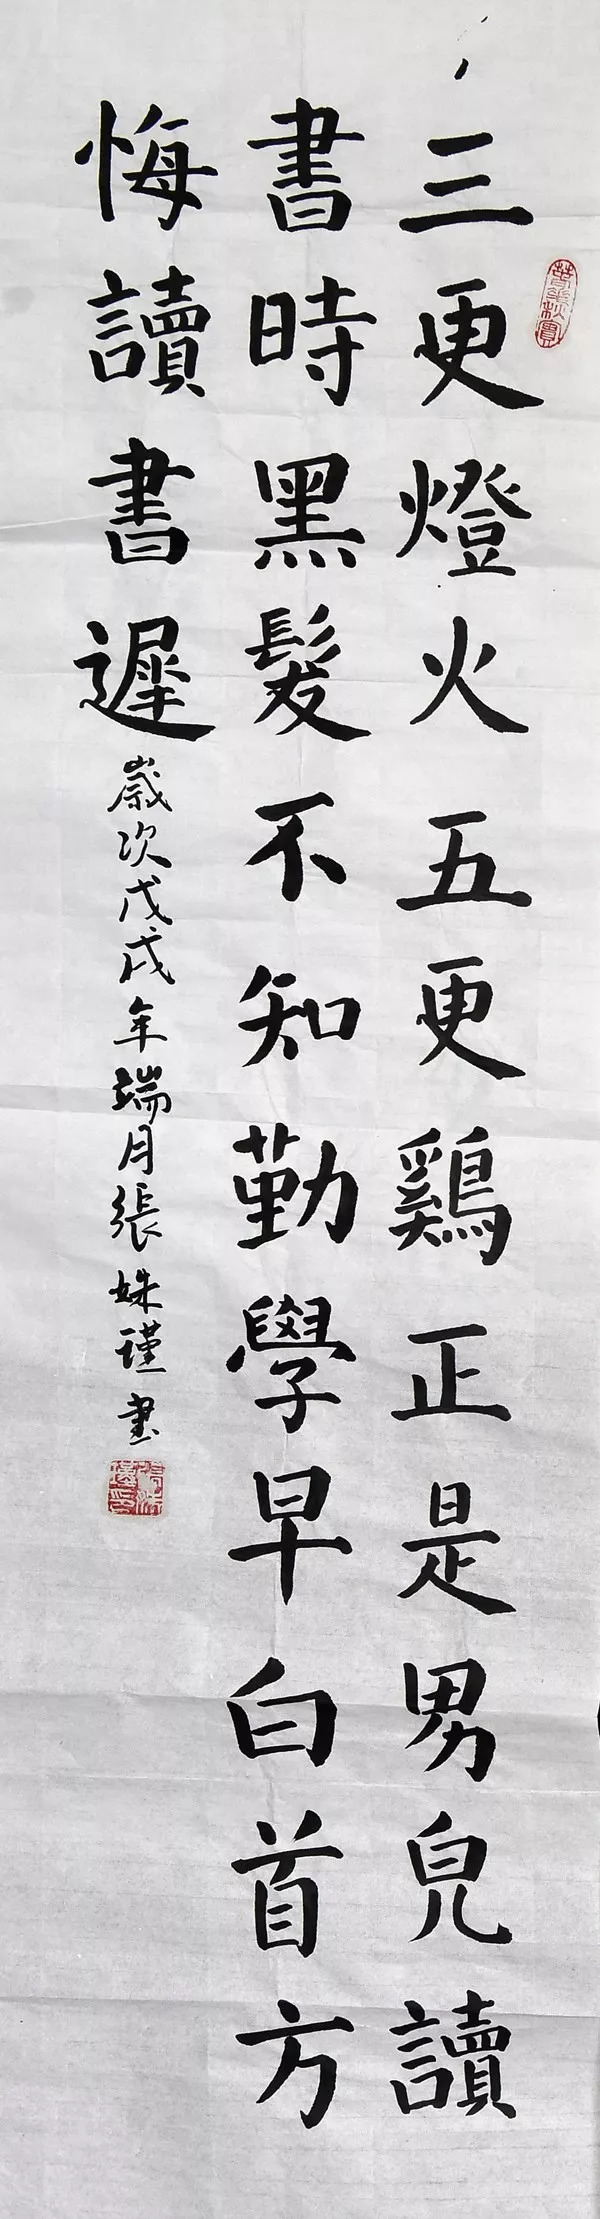 三更燈火五更鷄正是男兒讀
書時黑髮不知勤學早白首方
悔讀書遲
歲次戊戌年端月張姝瑾書